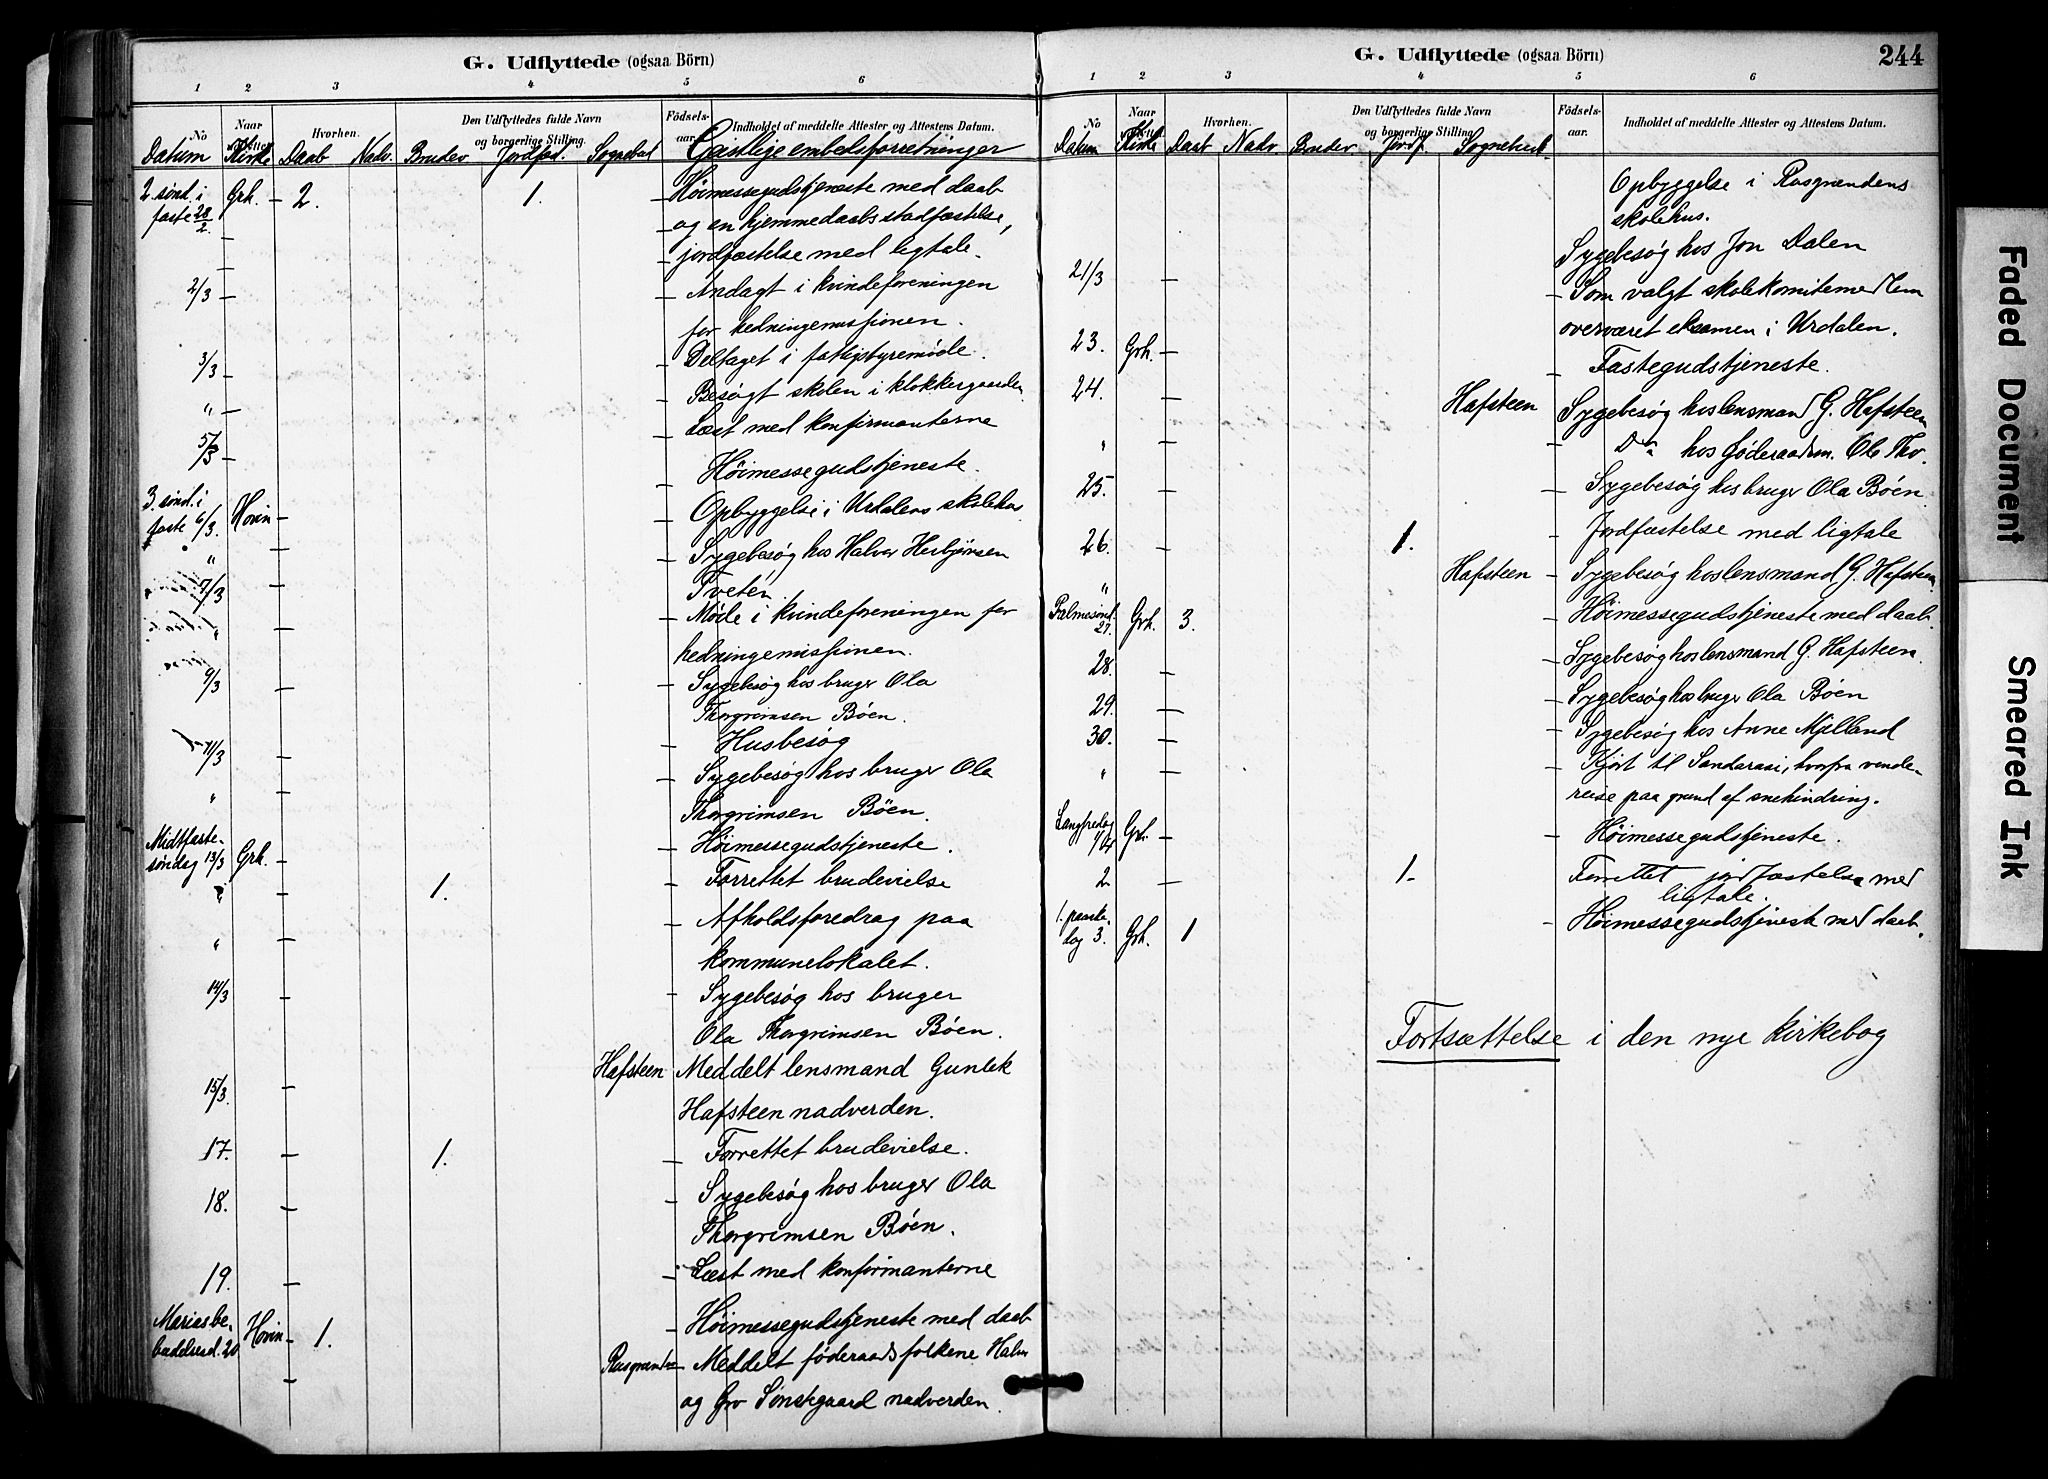 G. Udflyttede (ogsaa Börn)
1 2 3 4 5 6
No Naar Hvorhen. Den Udflyttedes fulde Navn og borgerlige Stilling. Födsels-aar. Indholdet af meddelte Attester og Attestens Datum.
Datum Kirke Daab Nadv. Brudev Jordfæst. Sognebud Geistlige embedsforretninger
2 sønd. i Grh. 2. 1. Höimessegudstjeneste med daab
faste 28/2. og en hjemmedaabs stadfæstelse,
jordfæstelse med ligtale.
2/3 Andagt i kvindeforeningen
for hedningemissionen.
3/3 Deltaget i fattigstyremøde.
" Besøgt skolen i klokkergaarden
5/3 Læst med konfirmanterne
3. sønd. i Hovin Höimessegudstjeneste.
faste 6/3.
" Opbyggelse i Urdalens skolehus
7/3 Sygebesøg hos Halvor Herbjørnsen
Tveten.
" Møde i kvindeforeningen for
hedningemissionen.
9/3 Sygebesøg hos bruger Ola
Thorgrimsen Böen.
11/3 Husbesøg
" Sygebesøg hos bruger Ola
Thorgrimsen Böen.
Midtfaste-
søndag 13/3 Grh. Höimessegudstjeneste.
" 1. Forrettet brudevielse
" Afholdt foredrag paa
kommunelokalet.
14/3 Sygebesøg hos bruger
Ola Thorgrimsen Böen.
15/3. Hafsteen Meddelt lensmand Gunlek
Hafsteen nadverden.
17. 1. Forrettet brudevielse.
18. Sygebesøg hos bruger Ola
Thorgrimsen Böen.
19. Læst med konfirmanterne
Marias be-
budelsesd. 20 Hovin 1. Höimessegudstjeneste med daab
Rusgrænden Meddelt føderaadsfolkene Halvor
og Gro Sønstegaard nadverden.
G. Udflyttede (ogsaa Börn) 244
1 2 3 4 5 6
No Naar Hvorhen. Den Udflyttedes fulde Navn og borgerlige Stilling. Födsels-aar. Indholdet af meddelte Attester og Attestens Datum.
Datum Kirke Daab Nadv. Brudev Jordf. Sognebud.
Opbyggelse i Rusgrændens
skolehus.
21/3 Sygebesøg hos Jon Dalen
23. Grh. Som valgt skolekomitemedlem
overværet eksamen i Urdalen.
24. Fastegudstjeneste.
Hafsteen Sygebesøg hos lensmand G. Hafsteen
" Do hos føderaadsm. Ole Tho.
25. Sygebesøg hos bruger Ola Böen
26. 1. Jordfæstelse med ligtale
" Hafsteen Sygebesøg hos lensmand G. Hafsteen
Palmesønd.
27. Grh. 3. Höimessegudstjeneste med daab.
28. Sygebesøg hos lensmand G. Hafsteen.
29. Sygebesøg hos bruger Ola Böen
30. Sygebesøg hos Anne Mjelland
" Kjørt til Sandaraai, hvorfra vende-
reise paa grund af snehindring.
Langfredag
1/04 Grh. Höimessegudstjeneste.
2 1. Forrettet jordfæstelse med
ligtale.
1. paaske-
dag 3. Grh. 1 Höimessegudstjeneste med daab.
Fortsættelse i den nye kirkebog
Faded Document
Smeared Ink